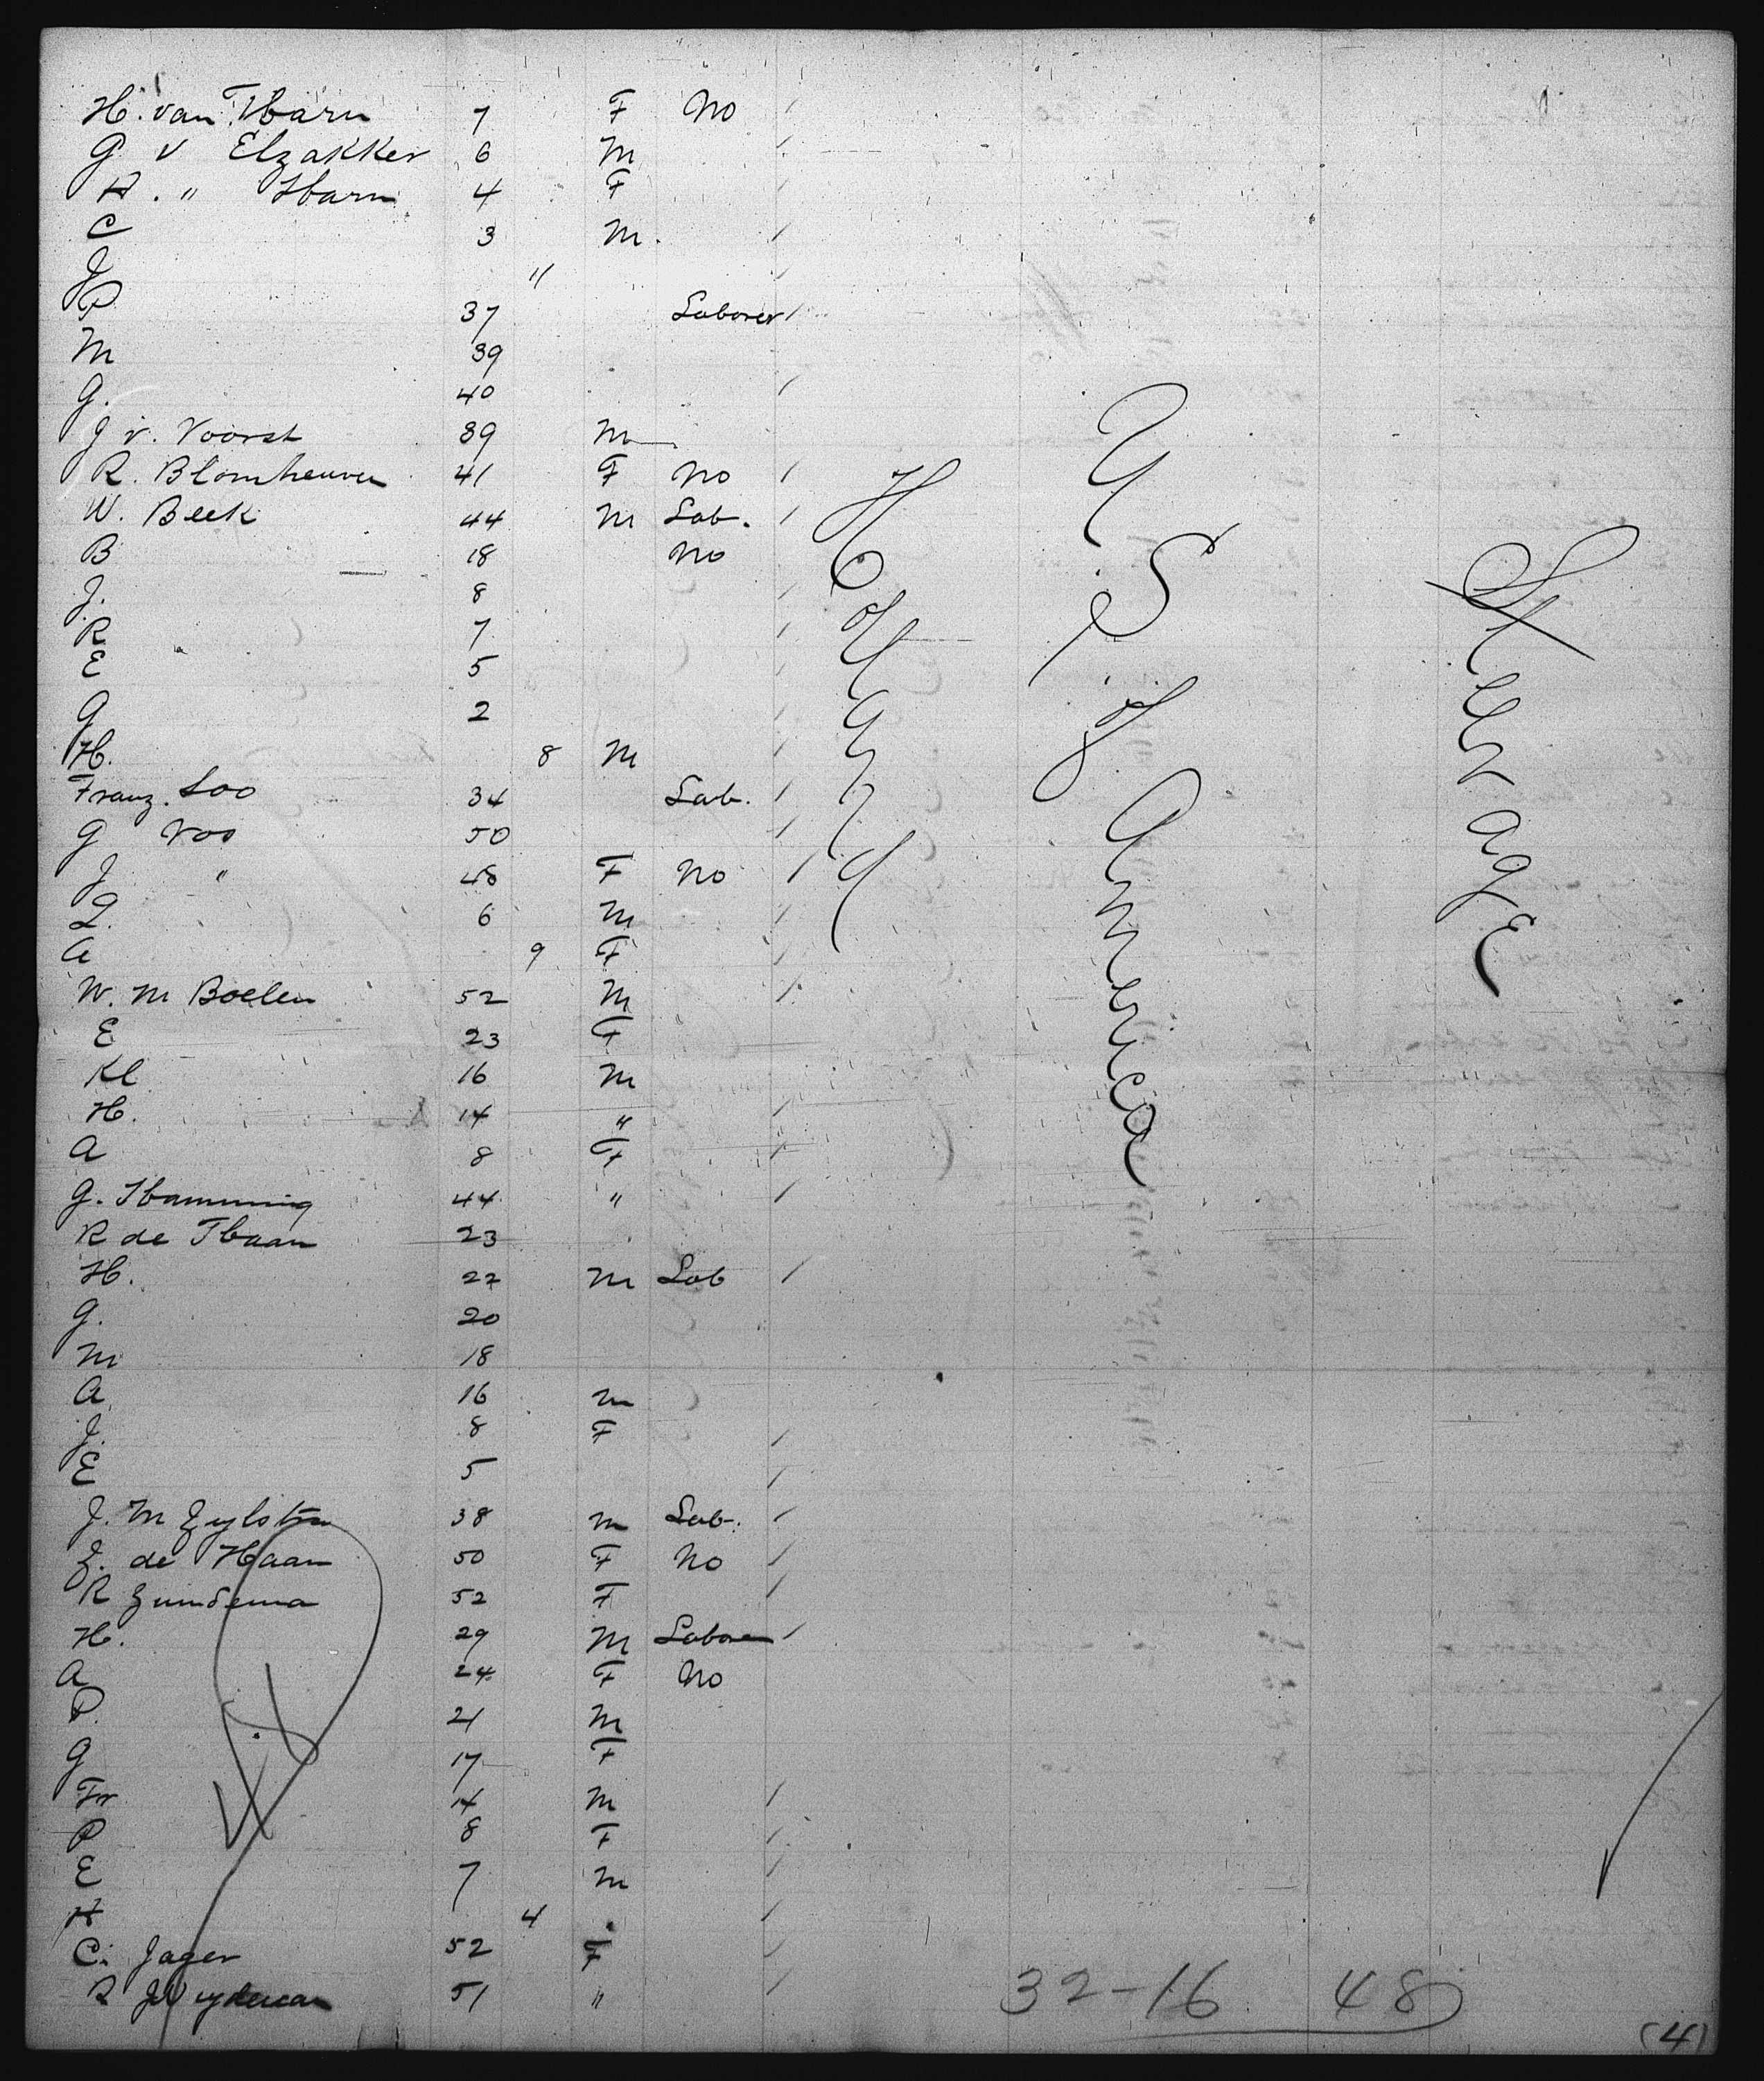 H. van Tharn 7 F No
G v Elzakker 6 M
A. " Harn 4 F
C 3 M.
J 11
P 37 Laborer
M 39
G. 40
J v. Voorst 39 M
R. Blomheuven 41 F No
W. Beek 44 M Lab.
B 18 No
J. 8
R 7
E 5
G 2
H. 8 M
Franz. Loo 34 Lab.
G Voo 50
J " 48 F No
L. 6 M
A 9 F
W. M Boelen 52 M
E 23 F
Kl 16 M
H. 14 "
A 8 F
G. Hamming 44 "
R de Haan 23
H. 22 M Lab
G. 20
M 18
A 16 M
J. 8 F
E 5
J. M Zylstra 38 M Lab.
Z. de Haan 50 F No
R Zuidema 52 F
H. 29 M Laborer
A 24 F No
P. 21 M
G 17 F
Fr 14 M
P 8 F
E 7 M
A 4
C. Jager 52 F
R 51 "
Holland
U S of America
Steerage
32-16 48
(4)